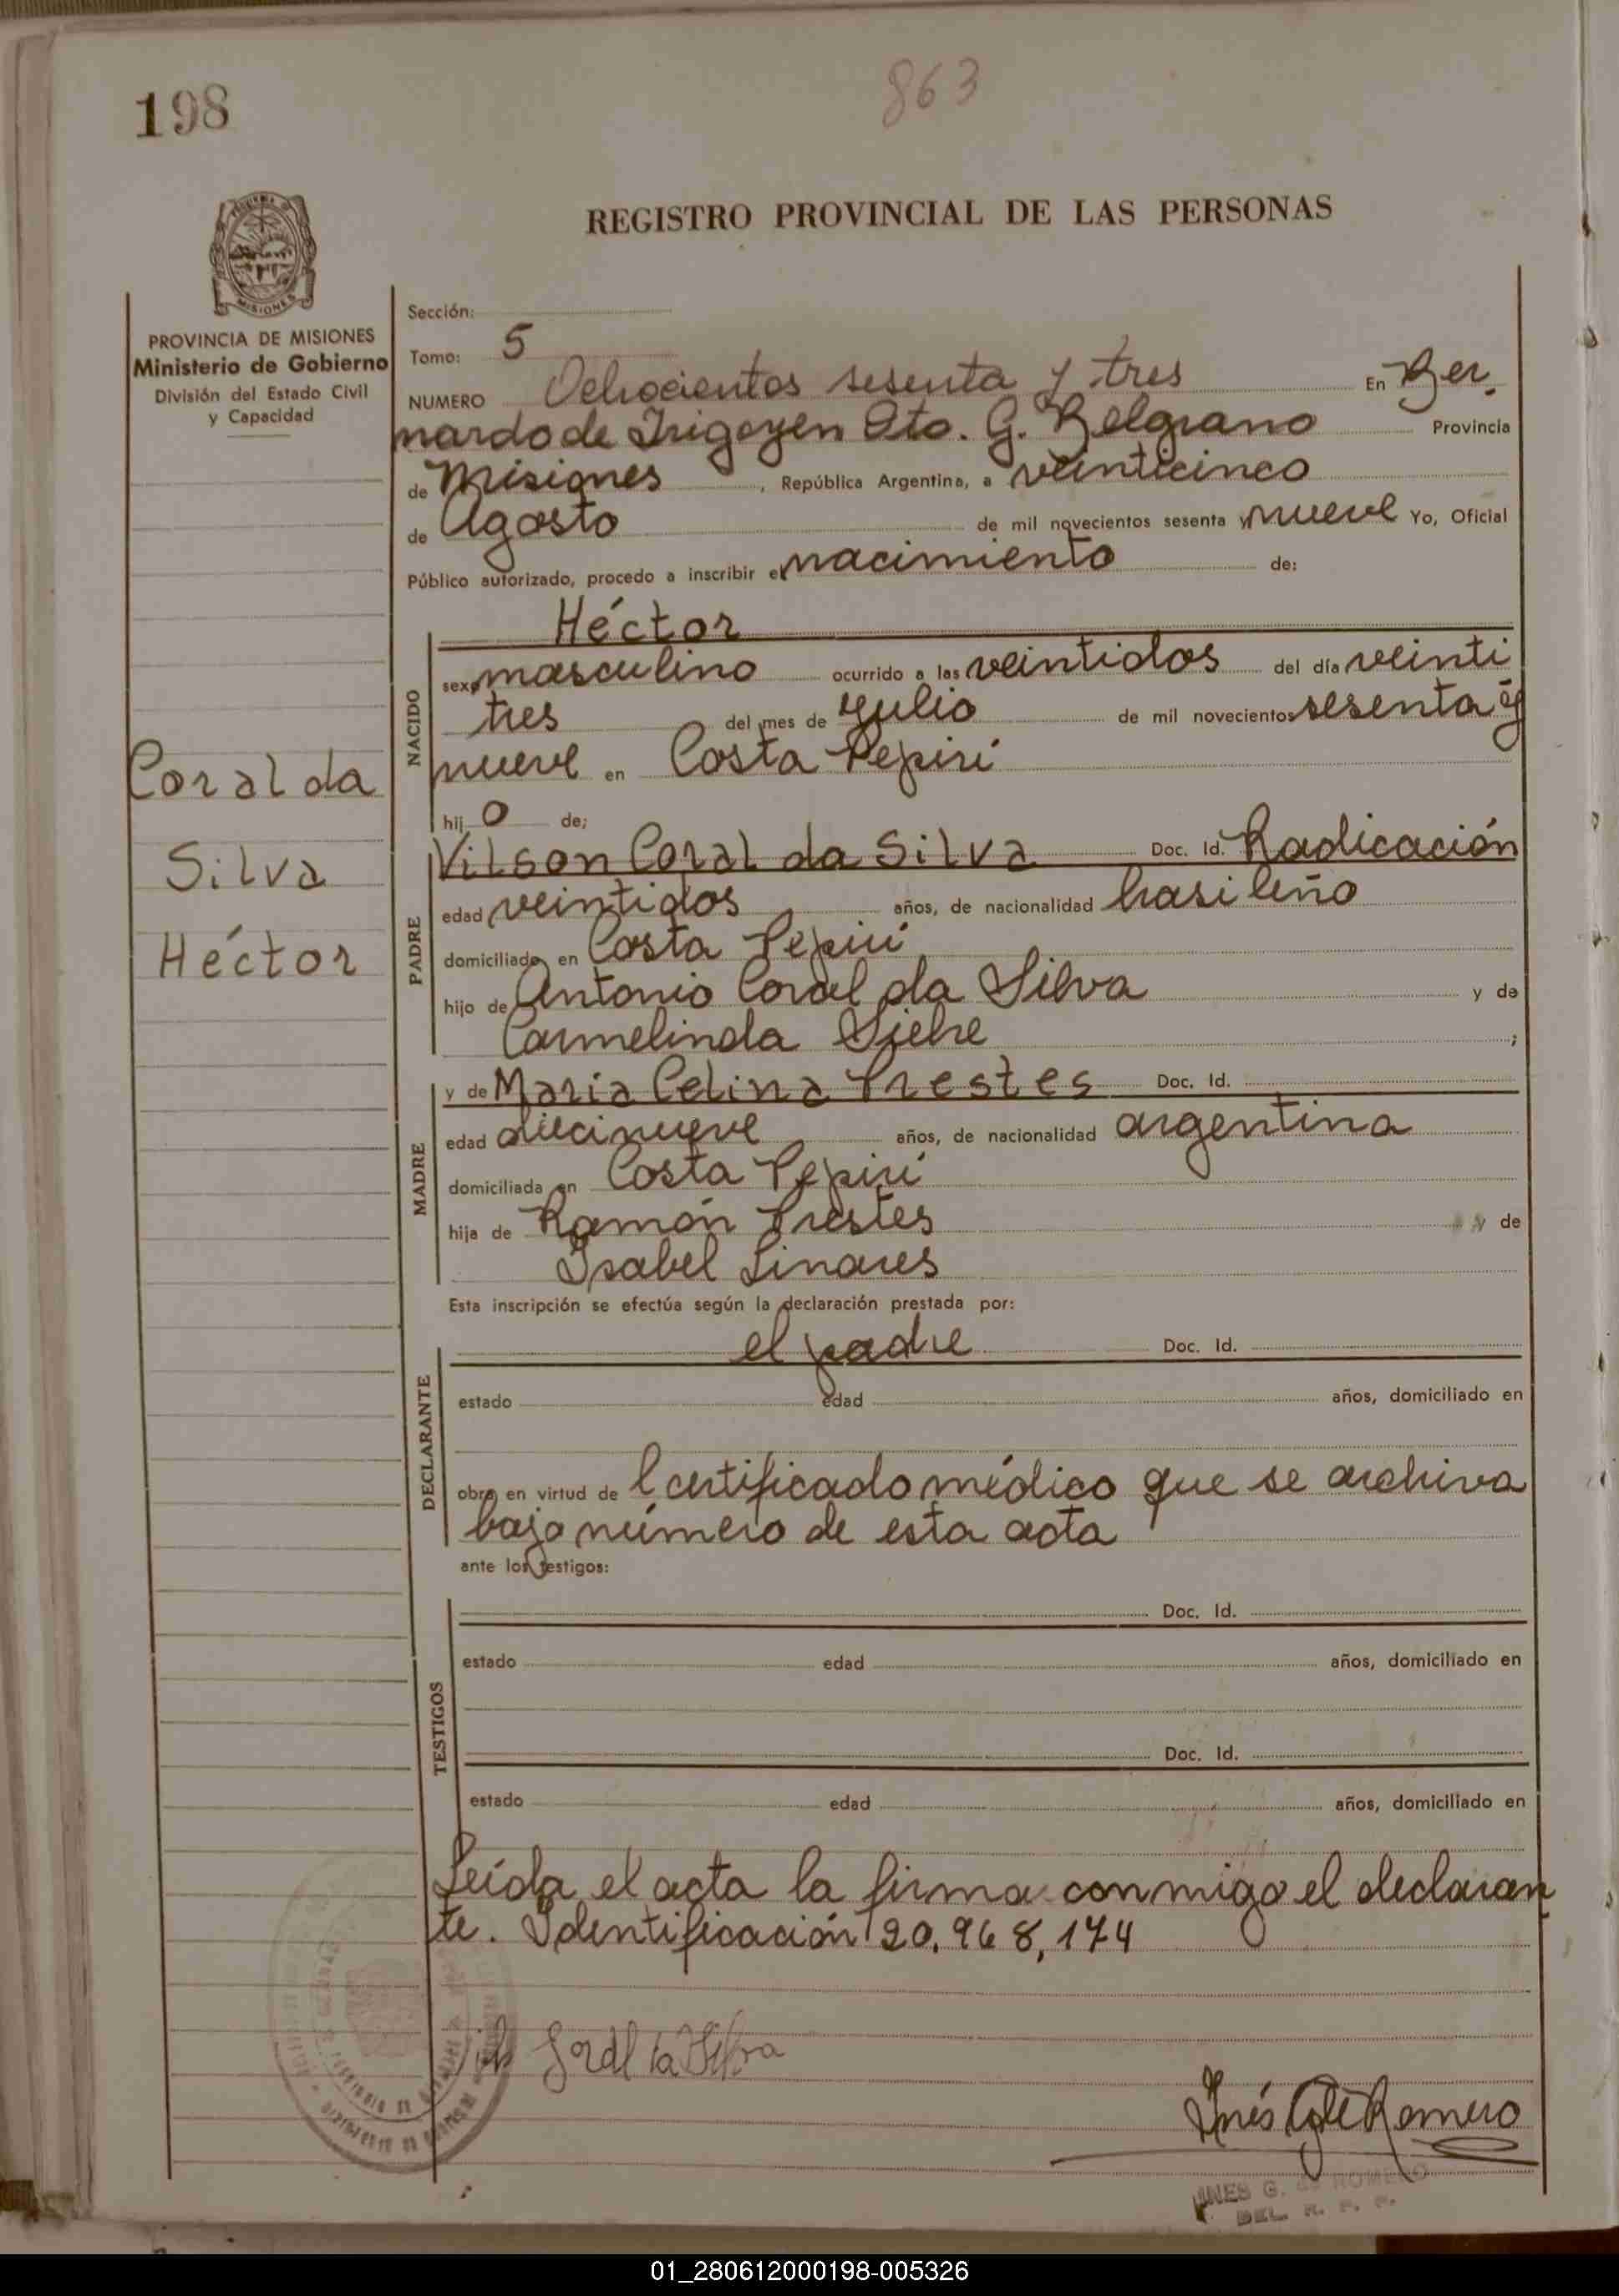 198
863
REGISTRO PROVINCIAL DE LAS PERSONAS
MISIONES
PROVINCIA DE MISIONES
Ministerio de Gobierno
División del Estado Civil
y Capacidad
Coral da
Silva
Héctor
Sección:
Tomo: 5
NUMERO Ochocientos sesenta y tres En Ber
nardo de Irigoyen Dto. G. Belgrano Provincia
de Misiones, República Argentina, a veinticinco
de Agosto de mil novecientos sesenta y nueve Yo, Oficial
Público autorizado, procedo a inscribir el nacimiento de:
Héctor
NACIDO
sexo masculino ocurrido a las veintidos del día veinti
tres del mes de Julio de mil novecientos sesenta y
nueve en Costa Pepirí
hijo de;
PADRE
Vilson Coral da Silva Doc. Id. Radicación
edad veintidos años, de nacionalidad brasileño
domiciliado en Costa Pepirí
hijo de Antonio Coral da Silva y de
Carmelinda ;
MADRE
y de Maria Celina Prestes Doc. Id.
edad diecinueve años, de nacionalidad argentina
domiciliada en Costa Pepirí
hija de Ramón Prestes y de
Isabel Linares
Esta inscripción se efectúa según la declaración prestada por:
DECLARANTE
el padre Doc. Id.
estado edad años, domiciliado en
obra en virtud de l certificado médico que se archiva
bajo número de esta acta
ante los testigos:
TESTIGOS
Doc. Id.
estado edad años, domiciliado en
Doc. Id.
estado edad años, domiciliado en
Leída el acta la firma conmigo el declaran
te. Identificación 20.968,174
Inés G. de Romero
INES G. de ROMERO
DEL. R. P. P.
01_280612000198-005326